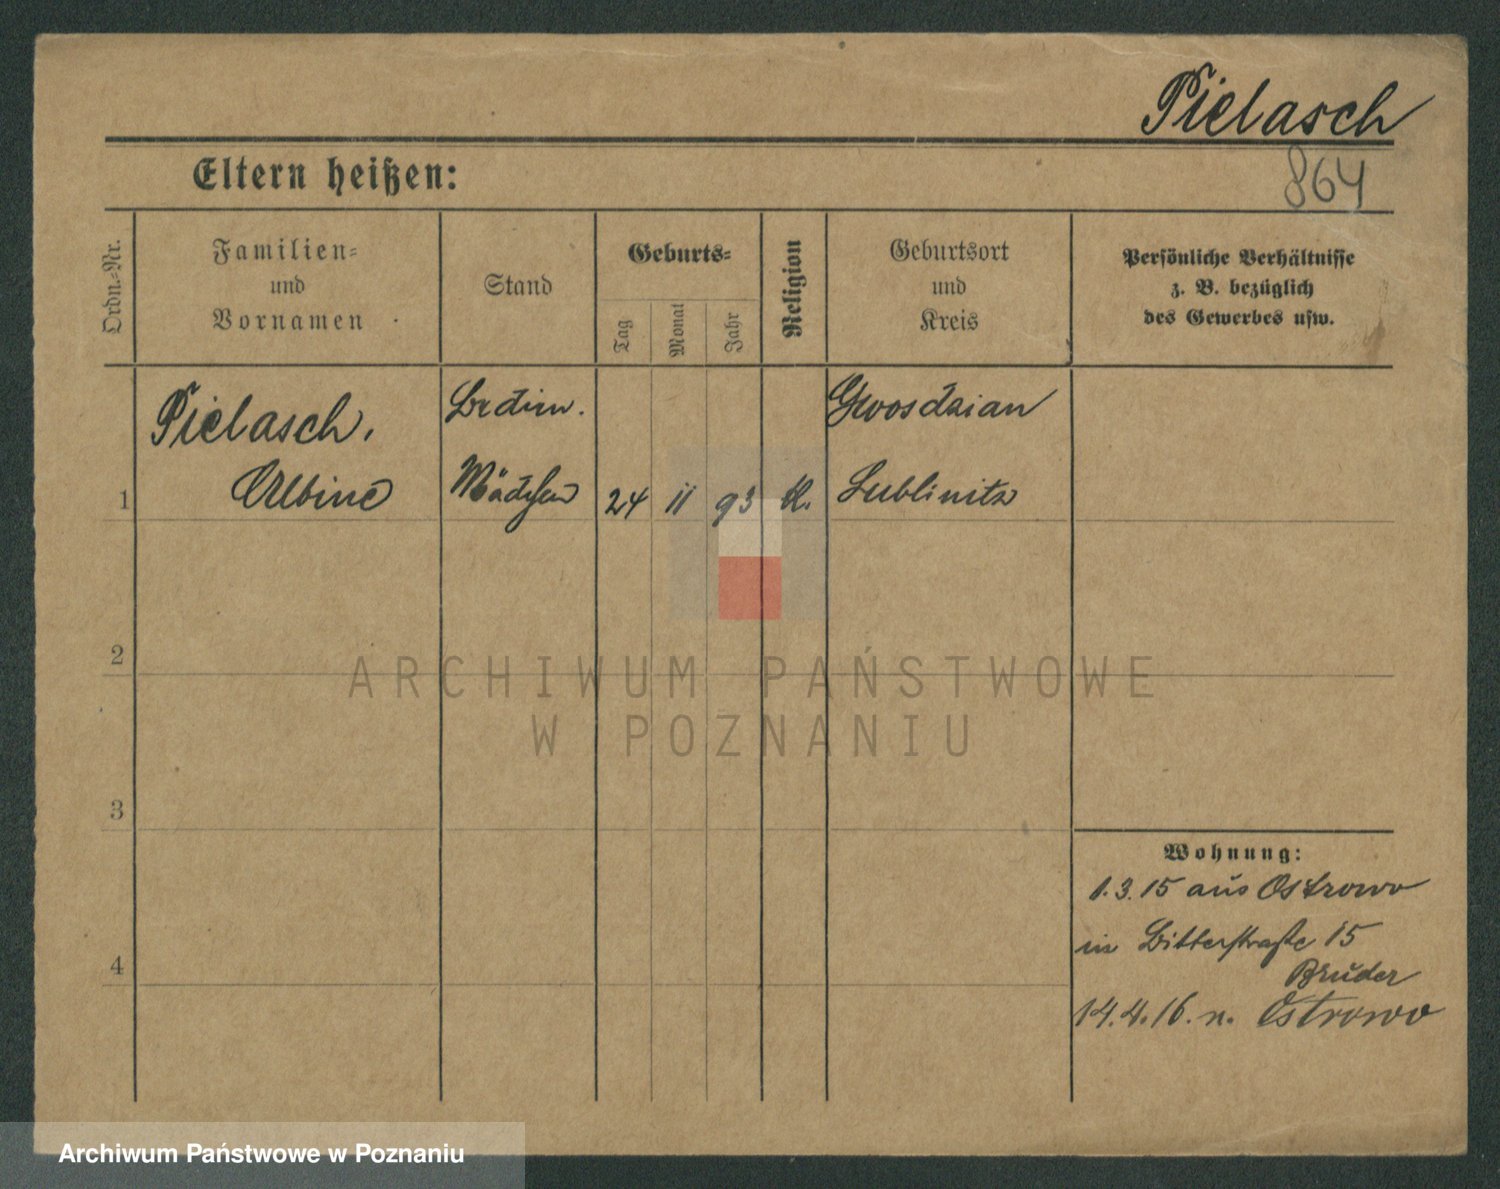 Pielasch
864
Eltern heißen:
Ordn.=Nr.
Familien=
und
Vornamen
Stand
Geburts=
Tag
Monat
Jahr
Religion
Geburtsort
und
Kreis
Persönliche Verhältnisse
z. B. bezüglich
des Gewerbes usw.
1
Pielasch,
Albine
Mädchen
24
11
93
K.
Gwosdzian
Lublinitz
2
3
4
ARCHIWUM PAŃSTWOWE
W POZNANIU
Wohnung:
1.3.15 aus Ostrowo
in Bitterstraße 15
Bruder
14.4.16. n. Ostrowo
Archiwum Państwowe w Poznaniu